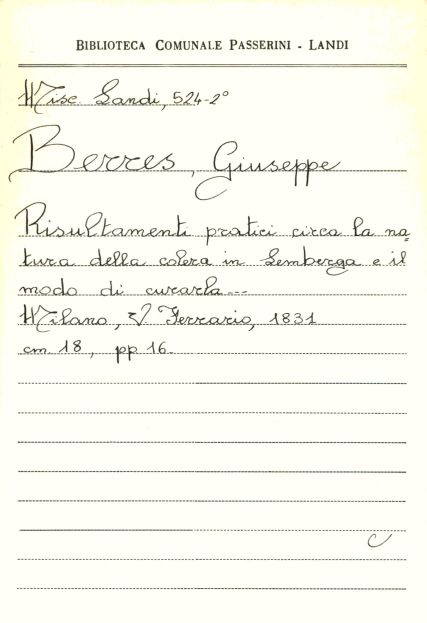 BIBLIOTECA COMUNALE PASSERINI - LANDI
Misc. Landi, 524-2°
Berres, Giuseppe
Risultamenti pratici circa la na=
tura della colera in Lemberga e il
modo di curarla...
Milano, V. Ferrario, 1831
cm. 18, pp 16.
C